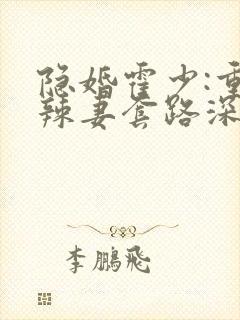 隐婚霍少:重
辣妻套路深
李鹏飞